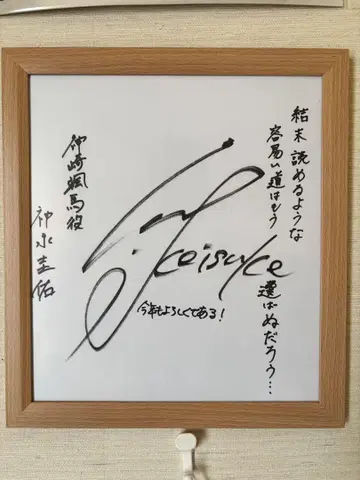 結末読めるような
容易い道はもう
選ばぬだろう…
Keisuke
今年もよろしくである!
神崎颯馬役
神永圭佑